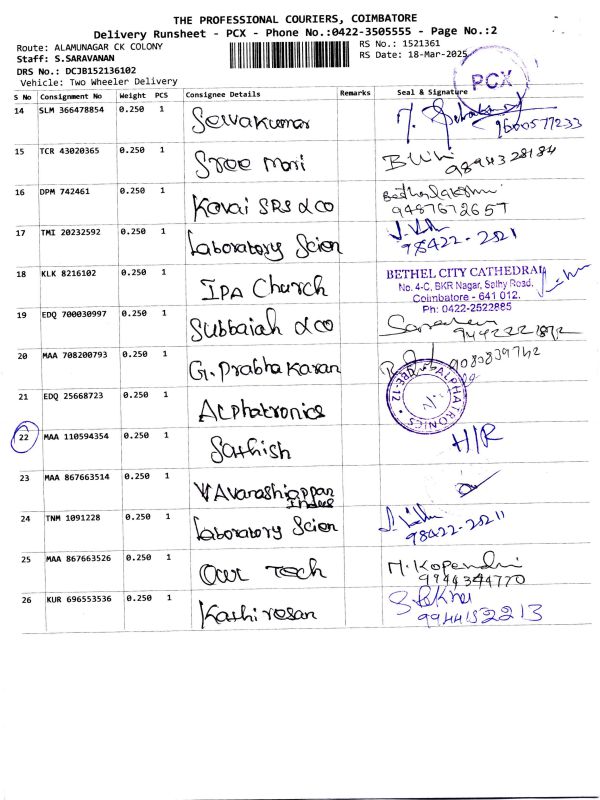 THE PROFESSIONAL COURIERS, COIMBATORE
Delivery Runsheet - PCX - Phone No.:0422-3505555 - Page No.:2
Route: ALAMUNAGAR CK COLONY RS No.: 1521361
Staff: S.SARAVANAN RS Date: 18-Mar-2025
DRS No.: DCJB152136102
Vehicle: Two Wheeler Delivery
PCX
S No Consignment No Weight PCS Consignee Details Remarks Seal & Signature
14 SLM 366478854 0.250 1 Selvakumar
9600577233
15 TCR 43020365 0.250 1 Sree Mari
9894328184
16 DPM 742461 0.250 1 Kovai SRS & CO
9487672657
17 TMI 20232592 0.250 1 Laboratory Scien
98422-2521
18 KLK 8216102 0.250 1 IPA Church BETHEL CITY CATHEDRAL
No. 4-C, BKR Nagar, Sathy Road,
Coimbatore - 641 012.
Ph: 0422-2522885
19 EDQ 700030997 0.250 1 Subbaiah & CO
20 MAA 708200793 0.250 1 G. Prabhakaran 9080839742
21 EDQ 25668723 0.250 1 Alphatronics ALPHATRONICS CBE-12
22 MAA 110594354 0.250 1 Sathish H/R
23 MAA 867663514 0.250 1 VAvarashiappan
Indus
24 TNM 1091228 0.250 1 Laboratory Scien
98422-25211
25 MAA 867663526 0.250 1 Our Tech M. Kopendri
9944344770
26 KUR 696553536 0.250 1 Kathirosan
9944152213